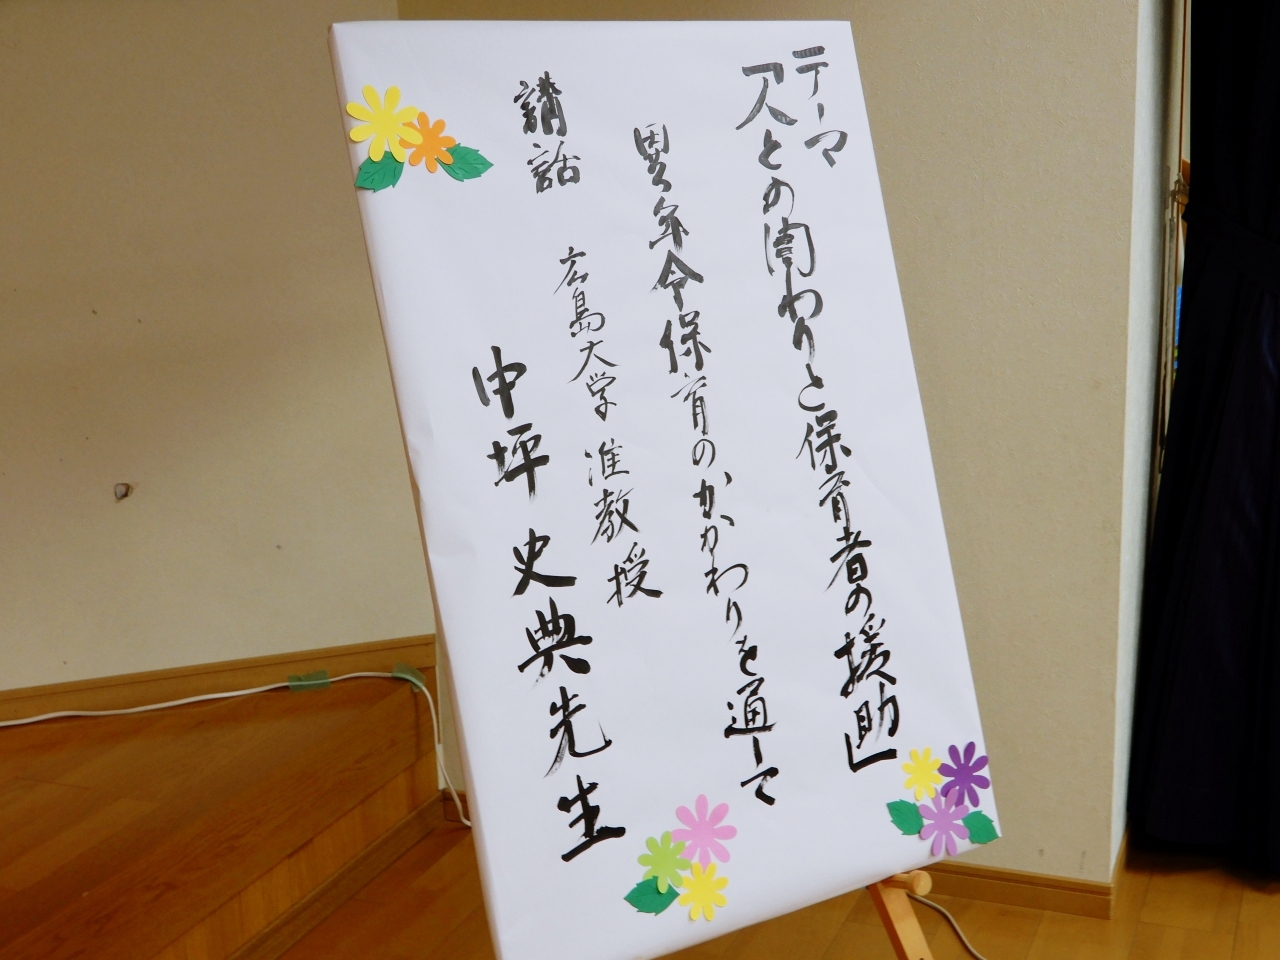 テーマ
「人との関わりと保育者の援助」
異年令保育のかかわりを通して
講話
広島大学 准教授
中坪 史典先生